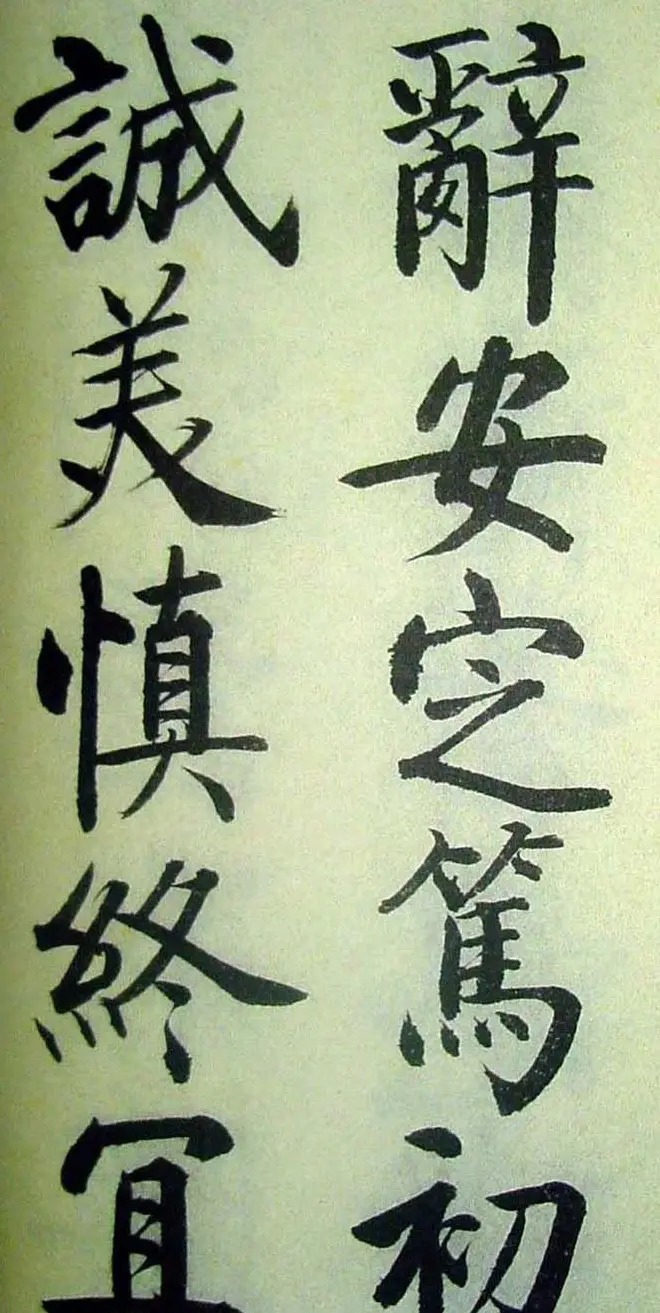 辭安定篤初
誠美慎終宜